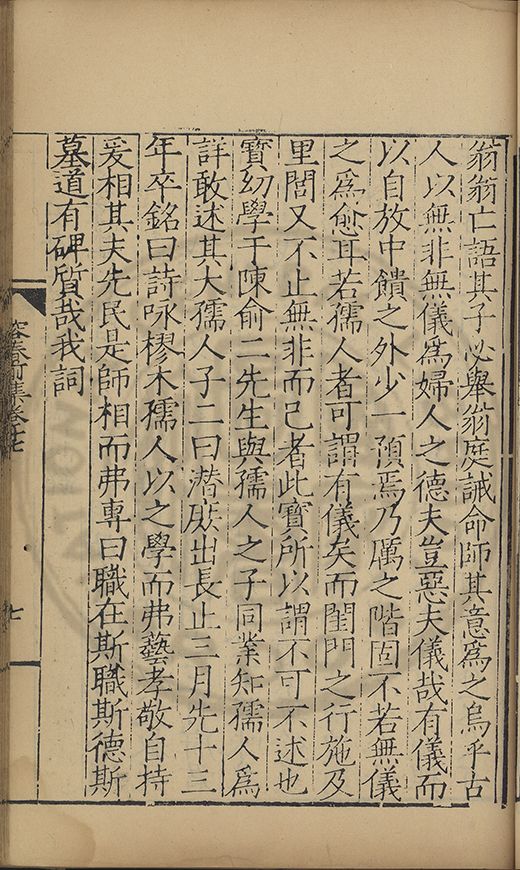 翁翁亡語其子必舉翁庭誡命師其意爲之烏乎古
人以無非無儀爲婦人之德夫豈惡夫儀哉有儀而
以自放中饋之外少一預焉乃厲之階固不若無儀
之爲愈耳若孺人者可謂有儀矣而閨門之行施及
里閭又不止無非而已者此寶所以謂不可不述也
寶幼學于陳俞二先生與孺人之子同業知孺人爲
詳敢述其大孺人子二曰潛厥出長止三月先十三
年卒銘曰詩咏樛木孺人以之學而弗藝孝敬自持
爰相其夫先民是師相而弗專曰職在斯職斯德斯
墓道有碑質哉我詞
容春前集卷十七
七